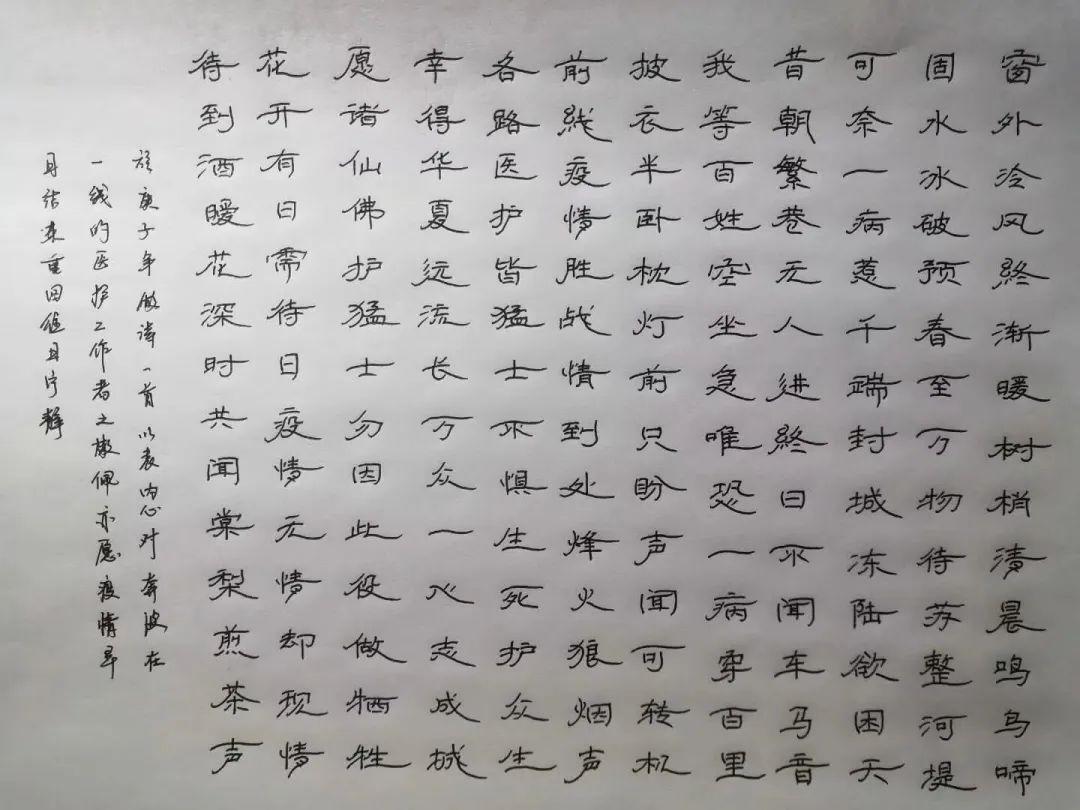 窗外冷风終渐暖树梢清晨鸣鸟啼
固水冰破预春至万物待苏整河堤
可奈一病惹千端封城冻陆欲困天
昔朝繁巷无人进終日不闻车马音
我等百姓空坐急唯恐一病穿百里
披衣半卧枕灯前只盼声闻可转机
前线疫情胜战情到处烽火狼烟声
各路医护皆猛士不惧生死护众生
幸得华夏远流长万众一心志成城
愿诸仙佛护猛士勿因此役做牺牲
花开有日需待日疫情无情却现情
待到酒暖花深时共闻棠梨煎茶声
於庚子年做诗一首以表内心对奔波在
一线的医护工作者之敬佩亦愿疫情早
日结束重回值日宁静